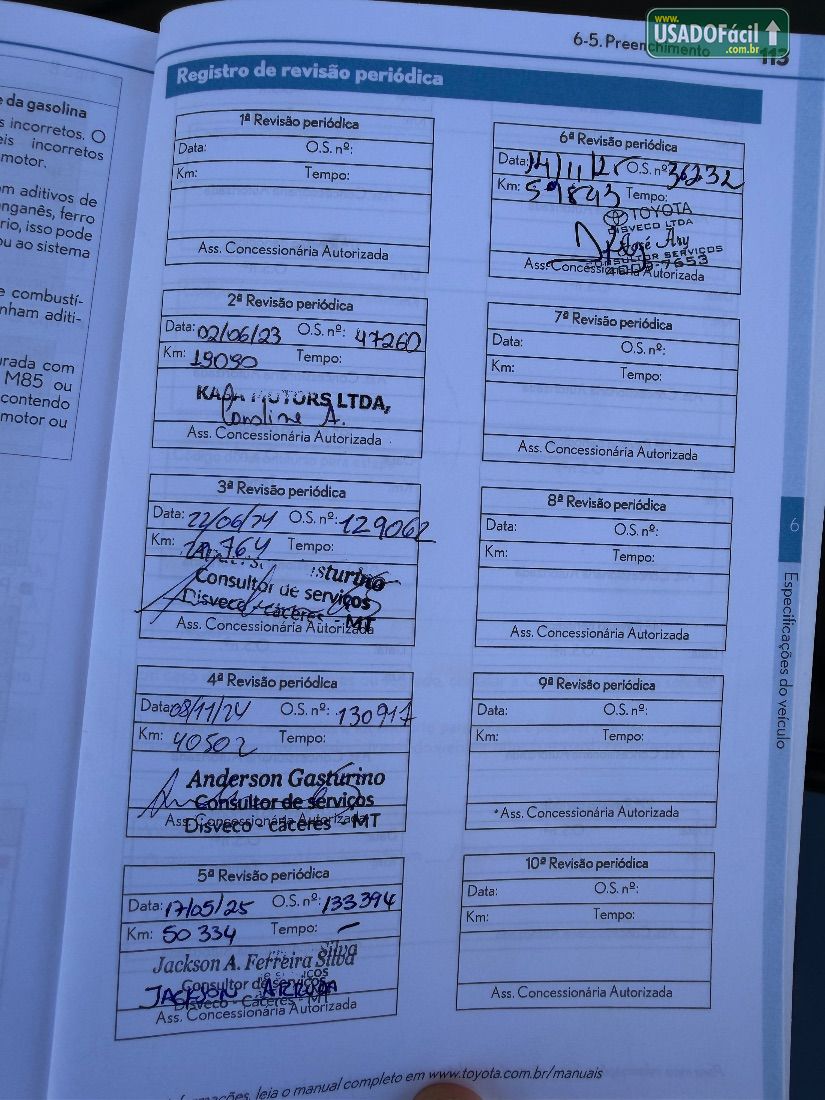 www.
USADOFácil
.com.br
6-5. Preenchimento
113
e da gasolina
s incorretos. O
eis incorretos
motor.
m aditivos de
nganês, ferro
rio, isso pode
ou ao sistema
e combustí-
nham aditi-
urada com
M85 ou
contendo
motor ou
Registro de revisão periódica
1ª Revisão periódica
Data: O.S. nº:
Km: Tempo:
Ass. Concessionária Autorizada
2ª Revisão periódica
Data: 02/06/23 O.S. nº: 47260
Km: 19090 Tempo:
KADA MOTORS LTDA,
Caroline A.
Ass. Concessionária Autorizada
3ª Revisão periódica
Data: 22/06/24 O.S. nº: 129062
Km: 764 Tempo:
sturino
Consultor de serviços
Disveco - cáceres - MT
Ass. Concessionária Autorizada
4ª Revisão periódica
Data: 08/11/24 O.S. nº: 130917
Km: 40502 Tempo:
Anderson Gasturino
Consultor de serviços
Disveco - cáceres - MT
Ass. Concessionária Autorizada
5ª Revisão periódica
Data: 17/05/25 O.S. nº: 133394
Km: 50 334 Tempo: -
Jackson A. Ferreira Silva
Consultor de serviços
JACKSON ARRUDA
Disveco - Cáceres - MT
Ass. Concessionária Autorizada
6ª Revisão periódica
Data: 14/11/25 O.S. nº 36232
Km: 59843 Tempo:
TOYOTA
DISVECO LTDA
José Ary
CONSULTOR SERVIÇOS
Ass. Concessionária Autorizada
7ª Revisão periódica
Data: O.S. nº:
Km: Tempo:
Ass. Concessionária Autorizada
8ª Revisão periódica
Data: O.S. nº:
Km: Tempo:
Ass. Concessionária Autorizada
9ª Revisão periódica
Data: O.S. nº:
Km: Tempo:
Ass. Concessionária Autorizada
10ª Revisão periódica
Data: O.S. nº:
Km: Tempo:
Ass. Concessionária Autorizada
6
Especificações do veículo
mações, leia o manual completo em www.toyota.com.br/manuais